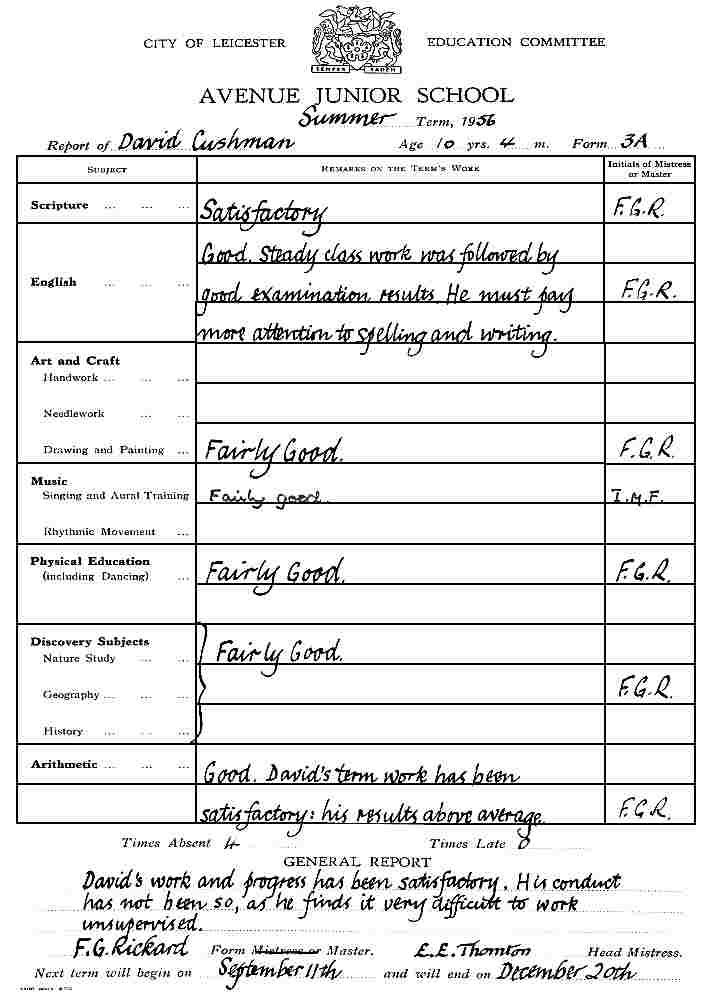 CITY OF LEICESTER EDUCATION COMMITTEE
SEMPER EADEM
AVENUE JUNIOR SCHOOL
Summer Term, 1956
Report of David Cushman Age 10 yrs. 4 m. Form 3A
SUBJECT REMARKS ON THE TERM'S WORK Initials of Mistress
or Master
Scripture ... ... ... Satisfactory F.G.R.
Good. Steady class work was followed by
English ... ... ... good examination results. He must pay F.G.R.
more attention to spelling and writing.
Art and Craft
Handwork ... ... ...
Needlework ... ...
Drawing and Painting ... Fairly Good. F.G.R.
Music
Singing and Aural Training Fairly good. I.M.F.
Rhythmic Movement ...
Physical Education
(including Dancing) ... Fairly Good. F.G.R.
Discovery Subjects
Nature Study ... ... Fairly Good.
Geography ... ... ... F.G.R.
History ... ... ...
Arithmetic ... ... ... Good. David's term work has been
satisfactory: his results above average. F.G.R.
Times Absent 4 Times Late 0
GENERAL REPORT
David's work and progress has been satisfactory. His conduct
has not been so, as he finds it very difficult to work
unsupervised.
F.G. Rickard Form Mistress or Master. E.E. Thornton Head Mistress.
Next term will begin on September 11th and will end on December 20th